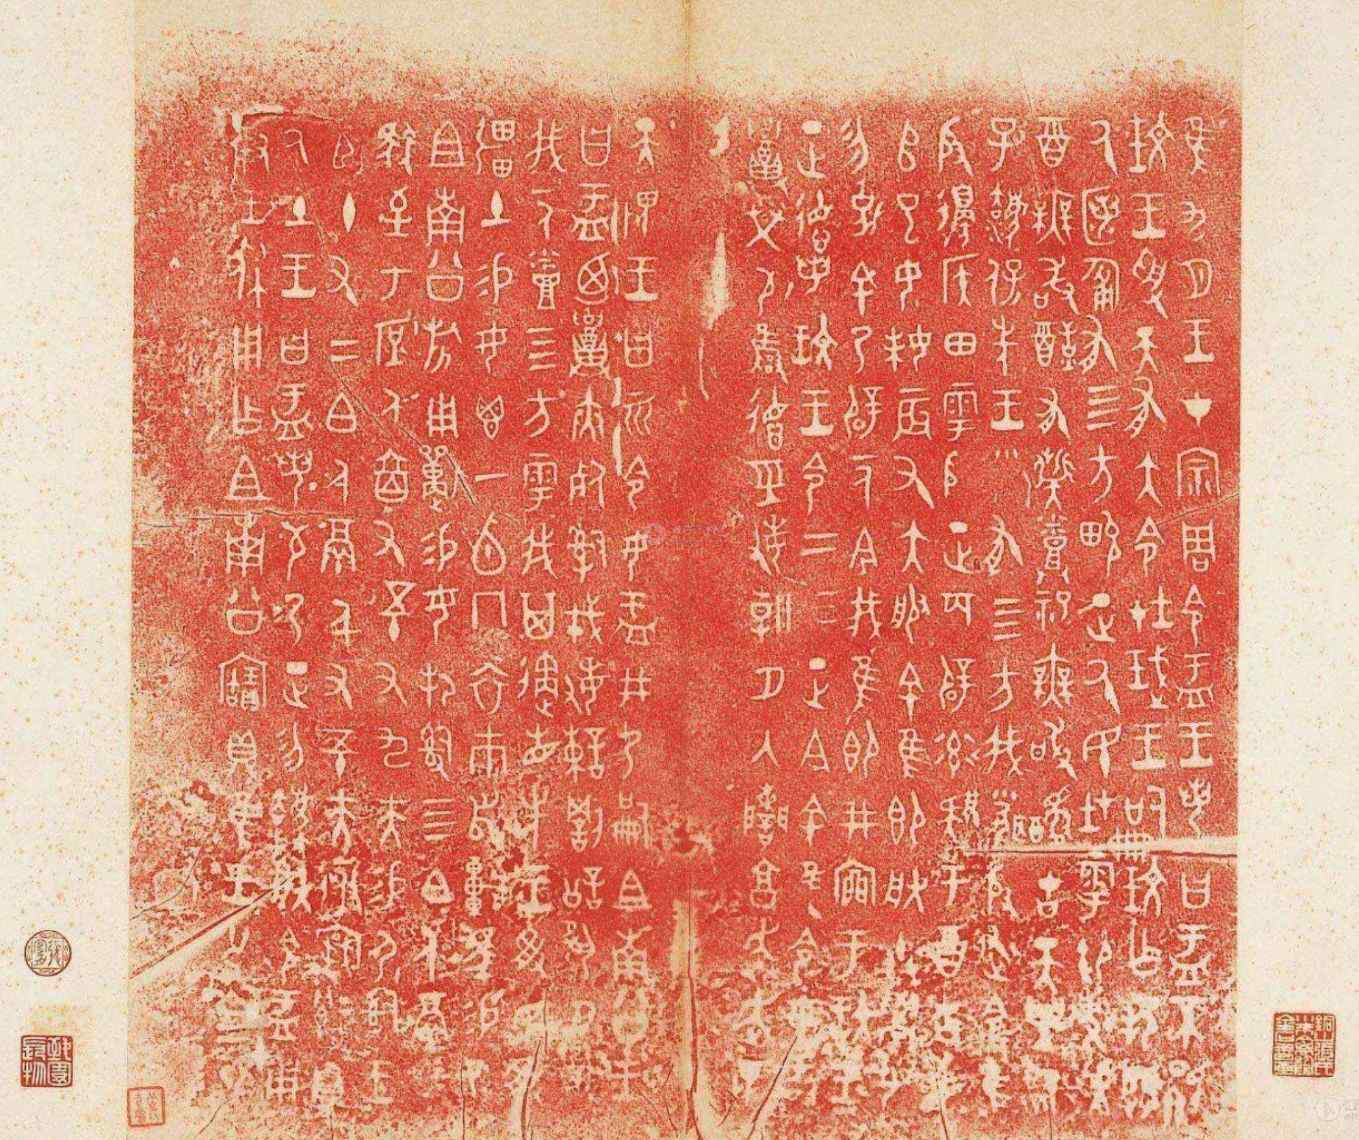 隹九月王才宗周令盂王若曰盂不顯
玟王受天有大令在珷王嗣玟乍邦闢
厥匿匍有四方畯正厥民在雩御事𠭯
酉無敢酖有髭蒸祀無敢醻古天異臨
子灋保先王有四方我聞殷述令隹
殷邊侯田雩殷正百辟率肄于酉古喪
𠂤已女妹辰又大服余隹即朕小學女
勿剋余乃辟一人今我隹即井㐭于玟王
正德若玟王令二三正今余隹令女盂
召榮敬雝德巠敏朝夕入讕享奔走畏
天畏王曰令女盂井乃嗣且南公王
曰盂廼召夾死司戎敏諫罰訟夙夕召
我一人烝四方雩我其遹省先王受民受
疆土易女鬯一卣冂衣巿舄車馬易乃
且南公旂用狩易女邦司四白人鬲自
馭至于庶人六百又五十又九夫易尸司王
臣十又三白人鬲千又五十夫遷自
厥土王曰盂若敬乃正勿灋朕令盂用
對王休用乍且南公寶鼎隹王廿又三祀